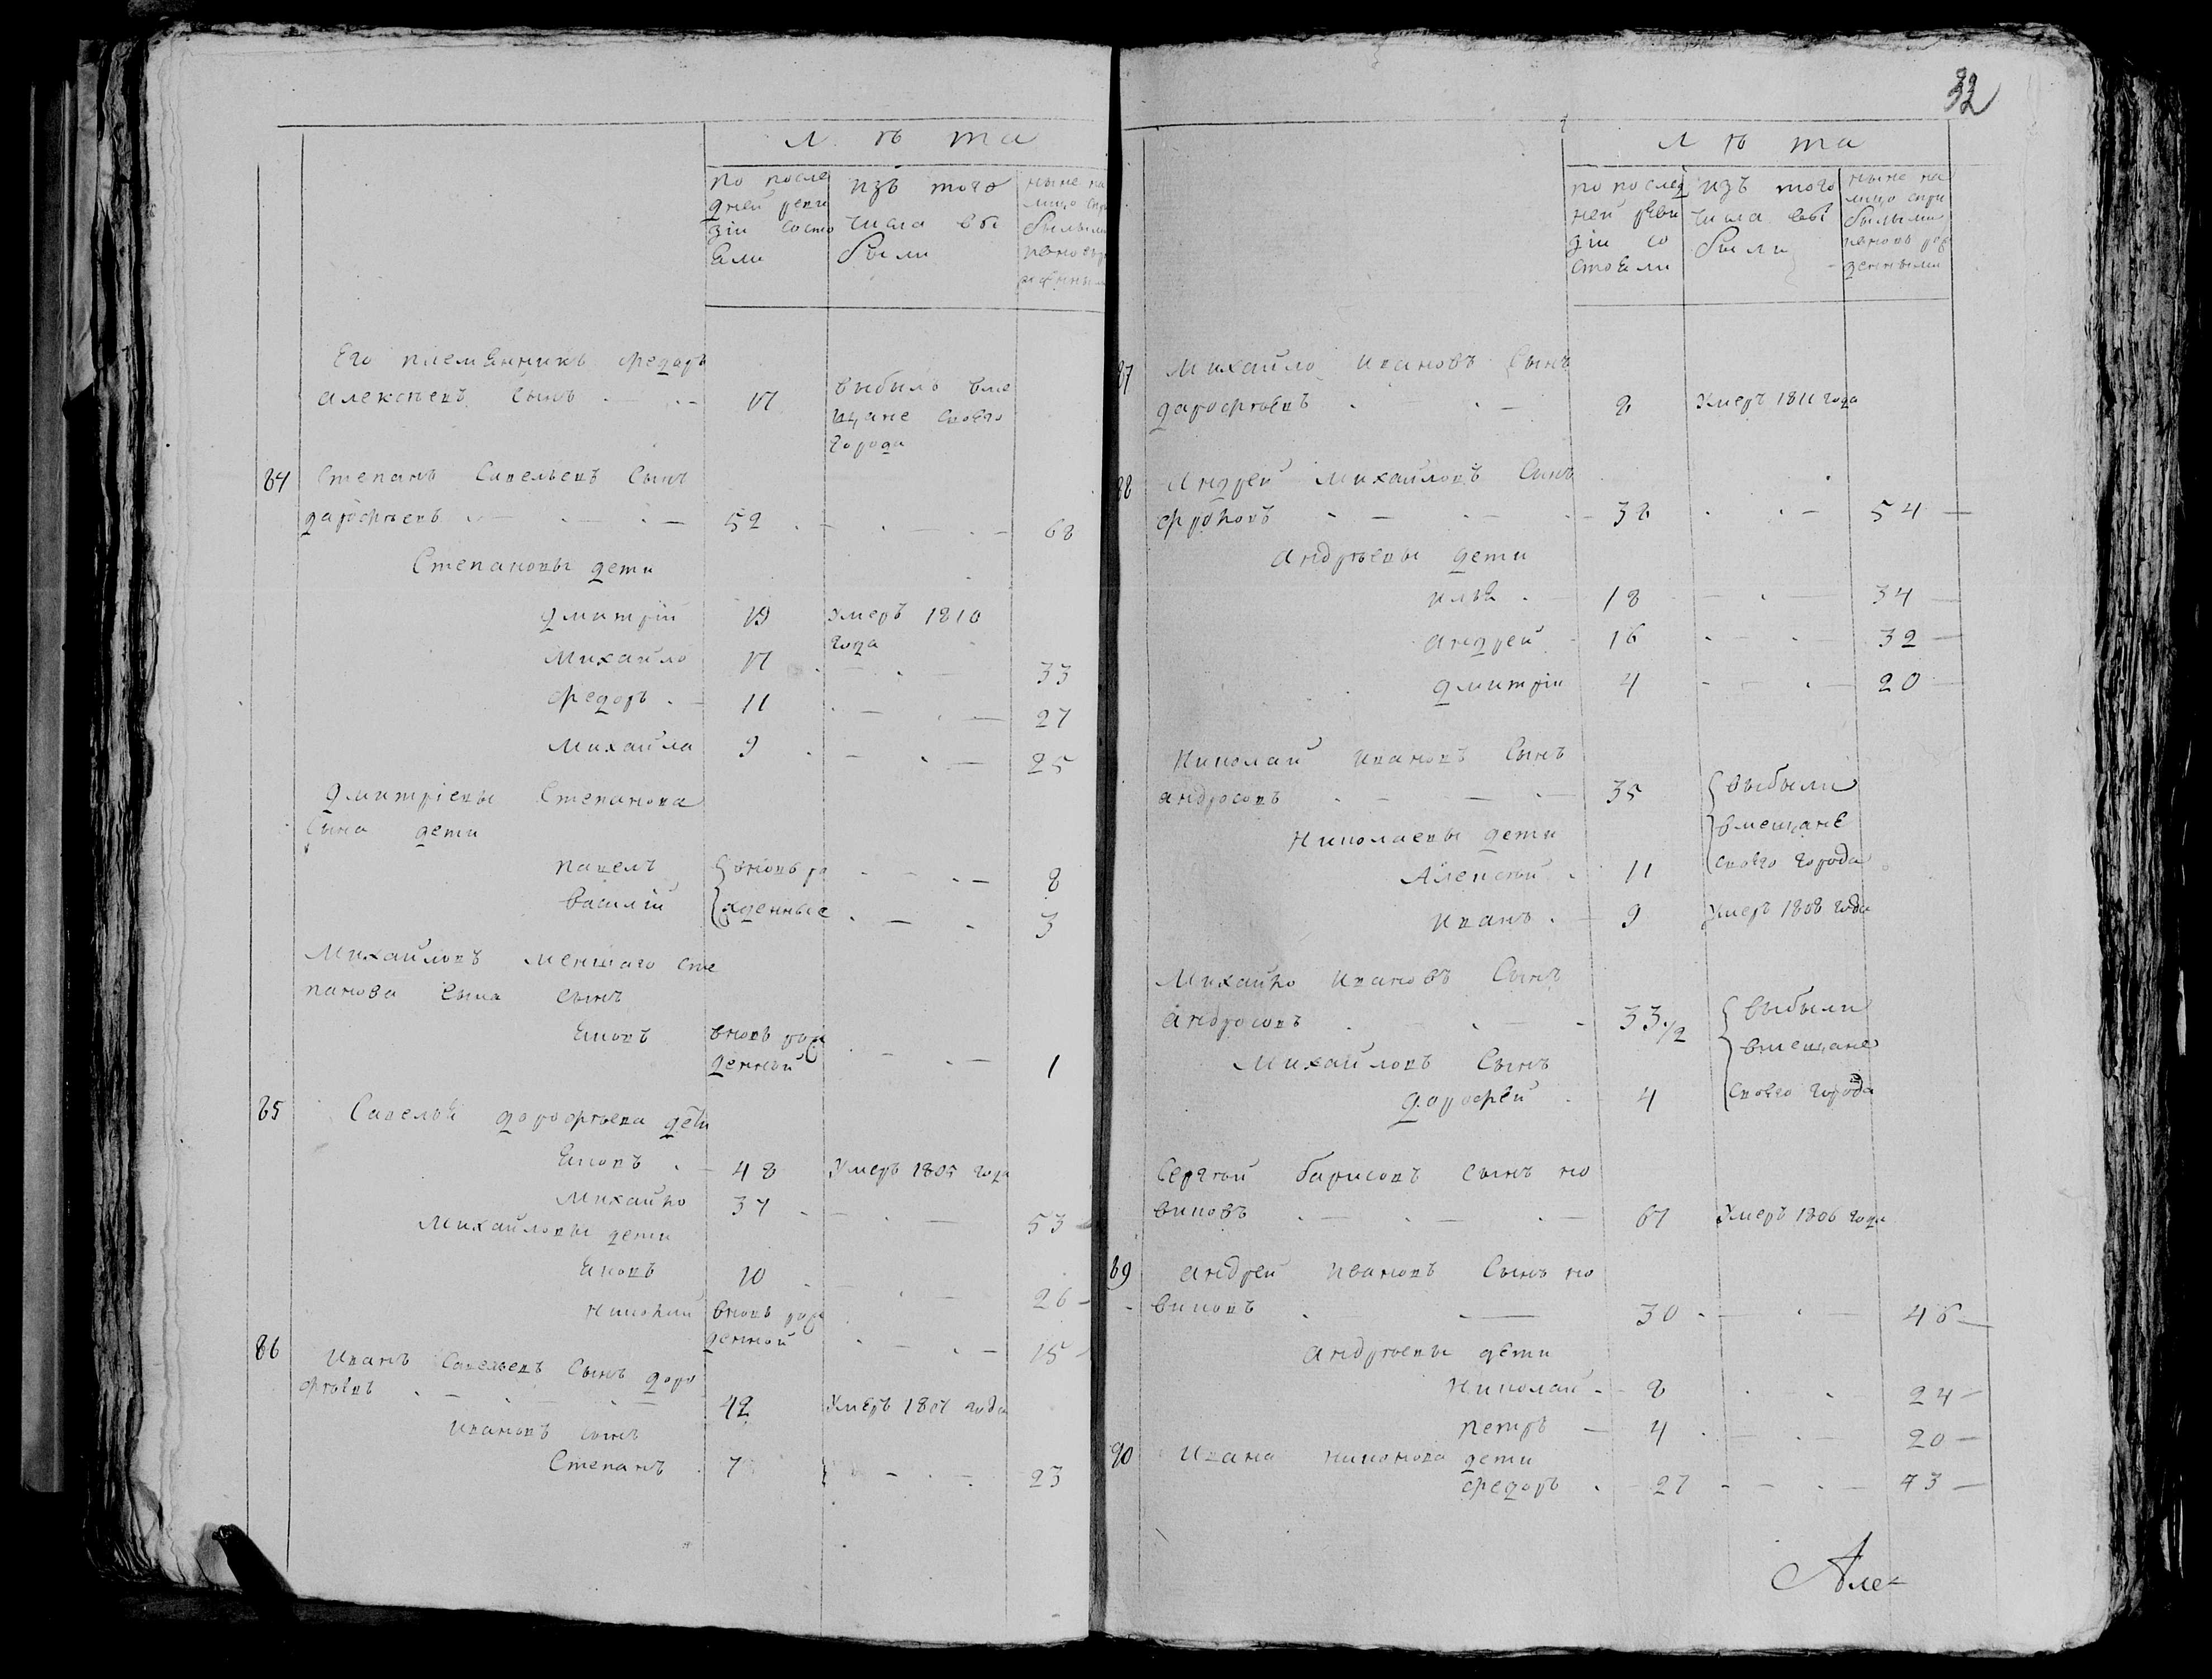 лѣта
по после
дней реви
зіи состо
яли
изъ того
числа вы
были
ныне на
лицо
Его племянникъ федоръ
алексѣевъ сынъ 17 выбылъ вме
щане своего
города
84 Степанъ Савельевъ Сынъ
дарофѣевъ 52 68
Степановы дети
дмитрій 19 Умеръ 1810
года
Михайло 17 33
федоръ 11 27
Михайла 9 25
дмитріевы Степанова
Сына дети
павелъ вновь ро 8
василій жденные 3
Михайловъ меншаго сте
панова сына сынъ
яковъ вновь рож
денной 1
85 Савелья дорофѣева дети
яковъ 48 Умеръ 1805 года
Михайло 37 53
Михайловы дети
яковъ 10 26
вновь рож
денной 15
86 Иванъ Савельевъ Сынъ доро
фѣевъ 42 Умеръ года
Ивановъ сынъ
Степанъ 7 23
32
лѣта
по послед
ней реви
зіи со
стояли
изъ того
числа вы
были
ныне на
лицо спри
былыми
ивновь рож
денными
87 Михайло Ивановъ Сынъ
дарофѣевъ 8 Умеръ 1811 года
88 Андрей Михайловъ Сынъ
фроловъ 38 54
андрѣевы дети
илья 18 34
андрей 16 32
дмитрій 4 20
Николай Ивановъ Сынъ
андросовъ 35 выбыли
вмещане
своего города
Николаевы дети
Алексѣй 11
Иванъ 9 Умеръ 1808 года
Михайло Ивановъ Сынъ
андросовъ 33 1/2 выбыли
вмещане
своего города
Михайловъ Сынъ
дарофей 4
Сергѣй барисовъ сынъ но
виковъ 67 Умеръ 1806 года
89 андрей Ивановъ Сынъ но
виковъ 30 46
андрѣевы дети
Николай 8 24
петръ 4 20
90 Ивана никонова дети
федоръ 27 43
Але-